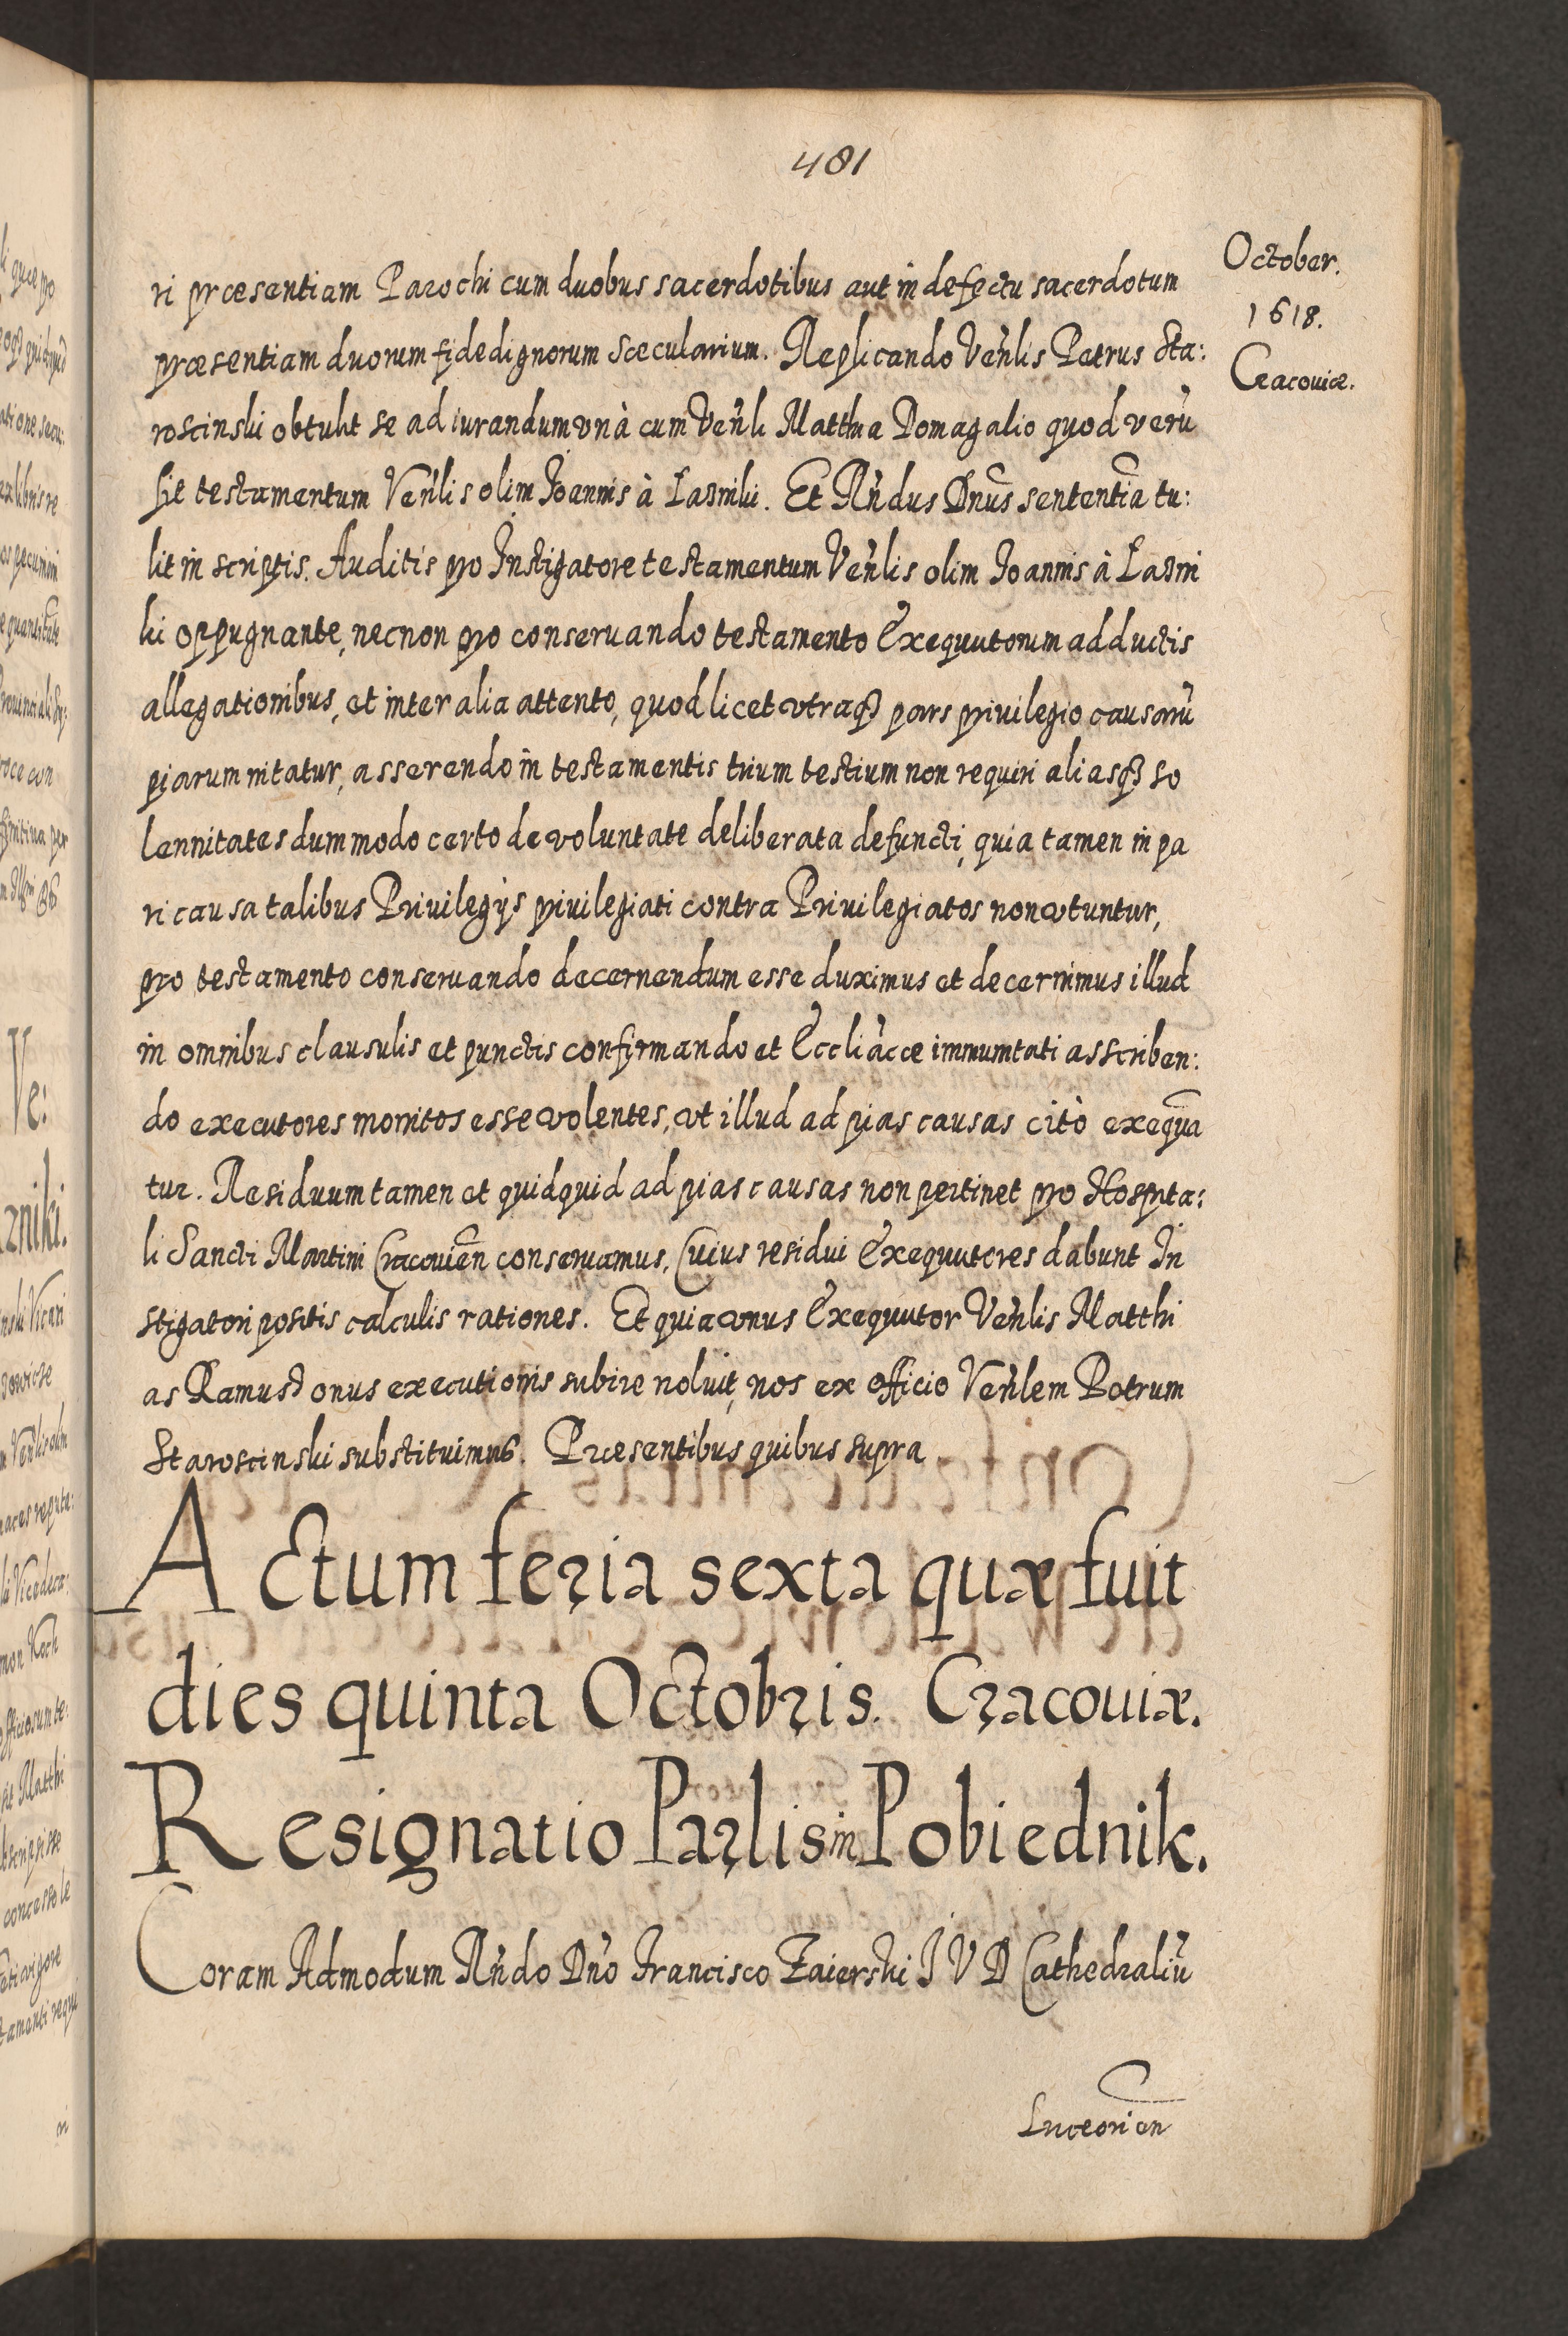 481
October.
1618.
Cracouiæ.
ri præsentiam Parochi cum duobus sacerdotibus aut in defectu sacerdotum
præsentiam duorum fide dignorum sæcularium. Replicando Veñlis Petrus Sta:
roscinski obtulit se ad iurandum vnà cum Veñli Matthia Domagalio quod verũ
sit testamentum Veñlis olim Joannis à Łazniki. Et Rñdus Dñus sententiã tu:
lit in scriptis. Auditis pro Instigatore testamentum Veñlis olim Joannis à Łazni
ki oppugnante, necnon pro conseruando testamento Exequutorum adductis
allegationibus, et inter alia attento, quod licet vtraqȝ pars priuilegio causarũ
piarum nitatur, asserendo in testamentis trium testium non requiri aliasqȝ so
lennitates dummodo certo de voluntate deliberata defuncti, quia tamen in pa
ri causa talibus Priuilegijs priuilegiati contra Priuilegiatos non vtuntur,
pro testamento conseruando decernendum esse duximus et decernimus illud
in omnibus clausulis et punctis confirmando et Eccliãcæ immunitati asscriben:
do executores monitos esse volentes, vt illud ad pias causas citò exequã
tur. Residuum tamen et quidquid ad pias causas non pertinet pro Hospita:
li Sancti Martini Cracouien̄ conseruamus, Cuius residui Exequutores dabunt In
stigatori positis calculis rationes. Et quia vnus Exequutor Veñlis Matthi
as Ramusd onus executionis subire noluit, nos ex officio Veñlem Petrum
Staroscinski substituimus. Præsentibus quibus supra
Actum feria sexta quæ fuit
dies quinta Octobris. Cracouiæ.
Resignatio Parlis in Pobiednik.
Coram Admodum Rñdo Dño Francisco Zaierski J V D Cathedraliũ
Luceorien̄